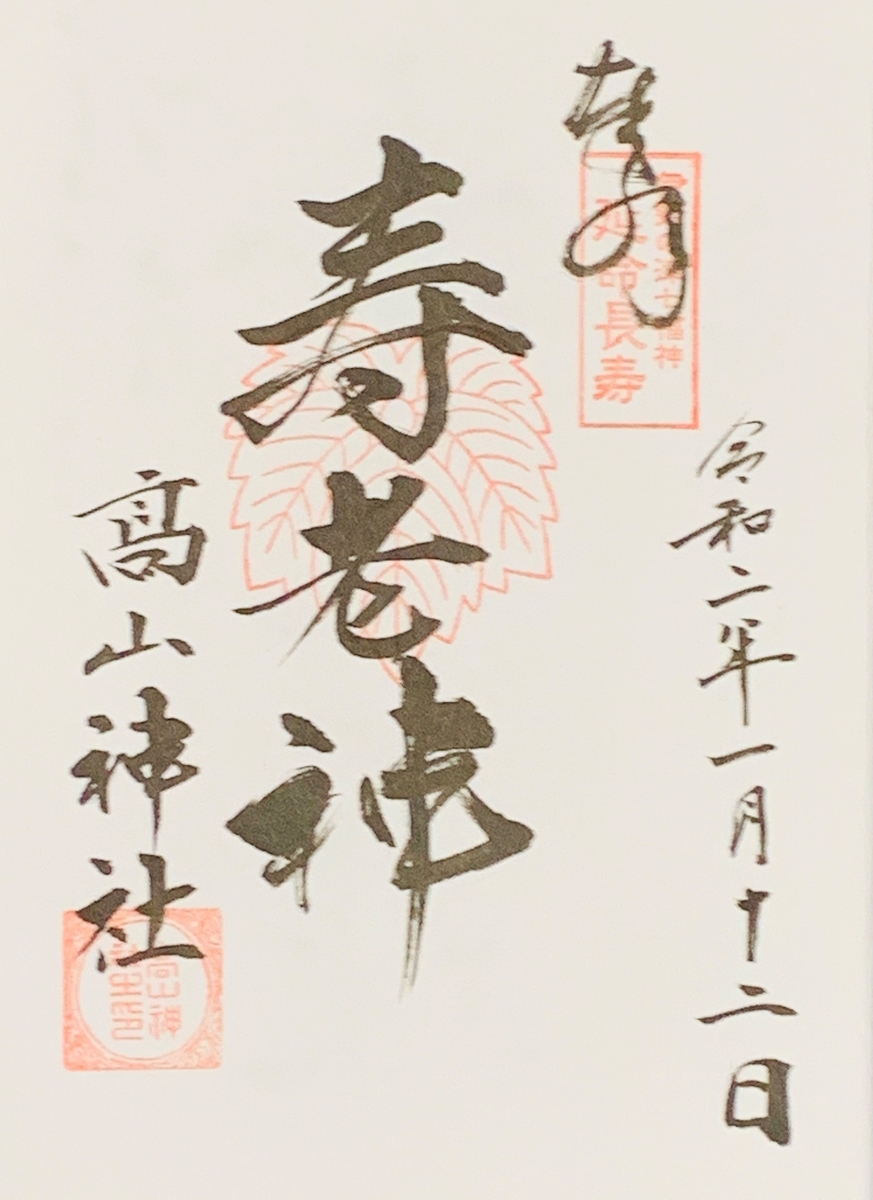 奉拝
伊勢の津七福神
延命長寿
令和二年一月十二日
寿老神
髙山神社
高山神
社之印